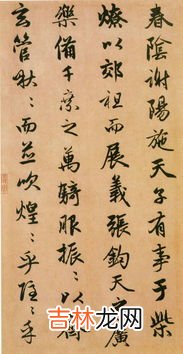 春陰謝陽施天子有事于柴
燎以郊祖而展義張鈞天之廣
樂備千乘之萬騎服振〻以
玄管秋〻而並吹煌〻乎隱〻乎
吉林龙网